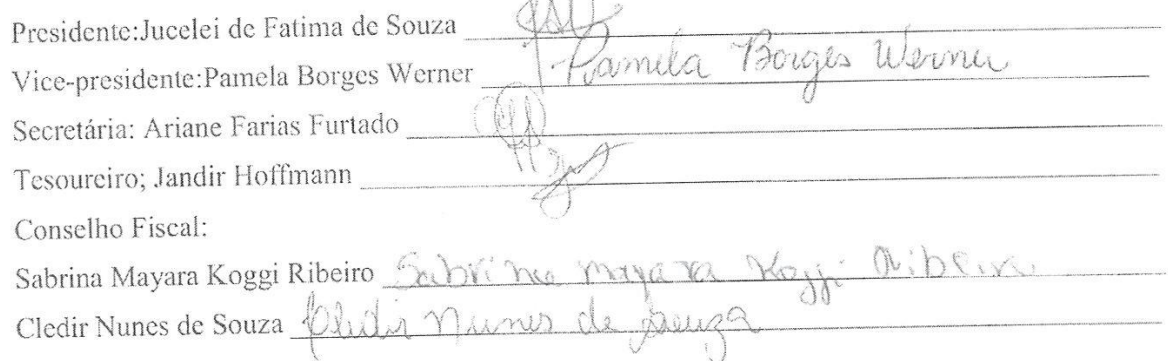 Presidente:Jucelei de Fatima de Souza
Vice-presidente:Pamela Borges Werner Pamela Borges Werner
Secretária: Ariane Farias Furtado
Tesoureiro; Jandir Hoffmann
Conselho Fiscal:
Sabrina Mayara Koggi Ribeiro Sabrina mayara Koggi Ribeiro
Cledir Nunes de Souza Cledir Nunes de Souza